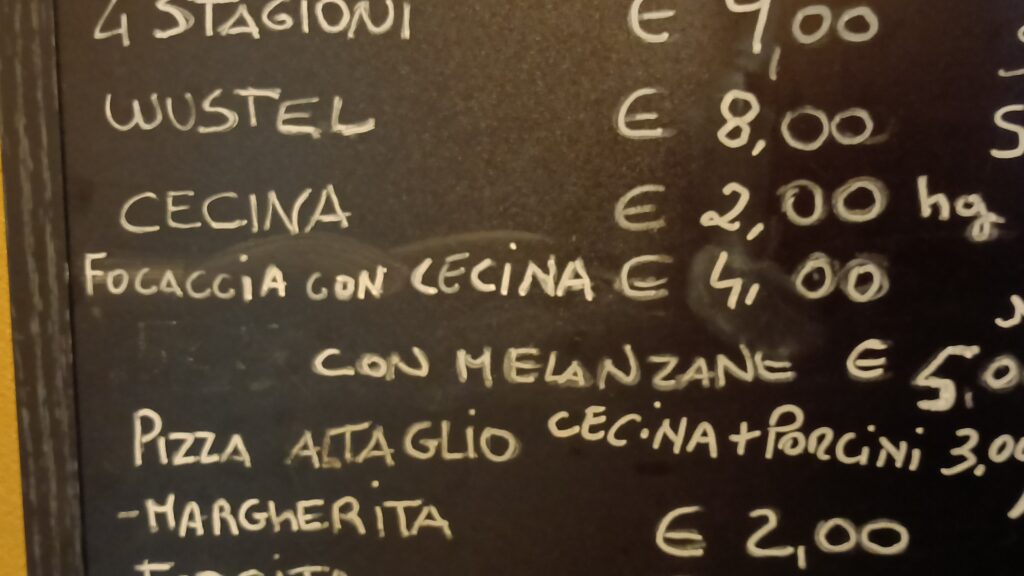 4 STAGIONI € 9,00
WUSTEL € 8,00
CECINA € 2,00 hg
FOCACCIA CON CECINA € 4,00
CON MELANZANE € 5,0
PIZZA AL TAGLIO CECINA + PORCINI 3,00
- MARGHERITA € 2,00